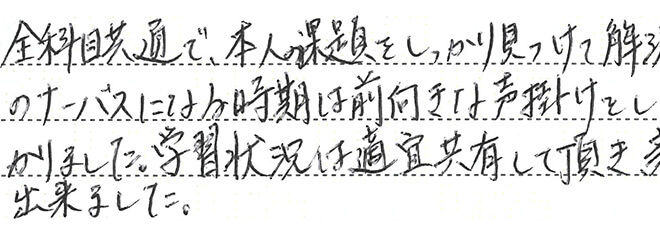 全科目共通で、本人課題をしっかり見つけて解決
のナーバスになる時期は前向きな声掛けをし
かりました。学習状況は適宜共有して頂き
出来ました。